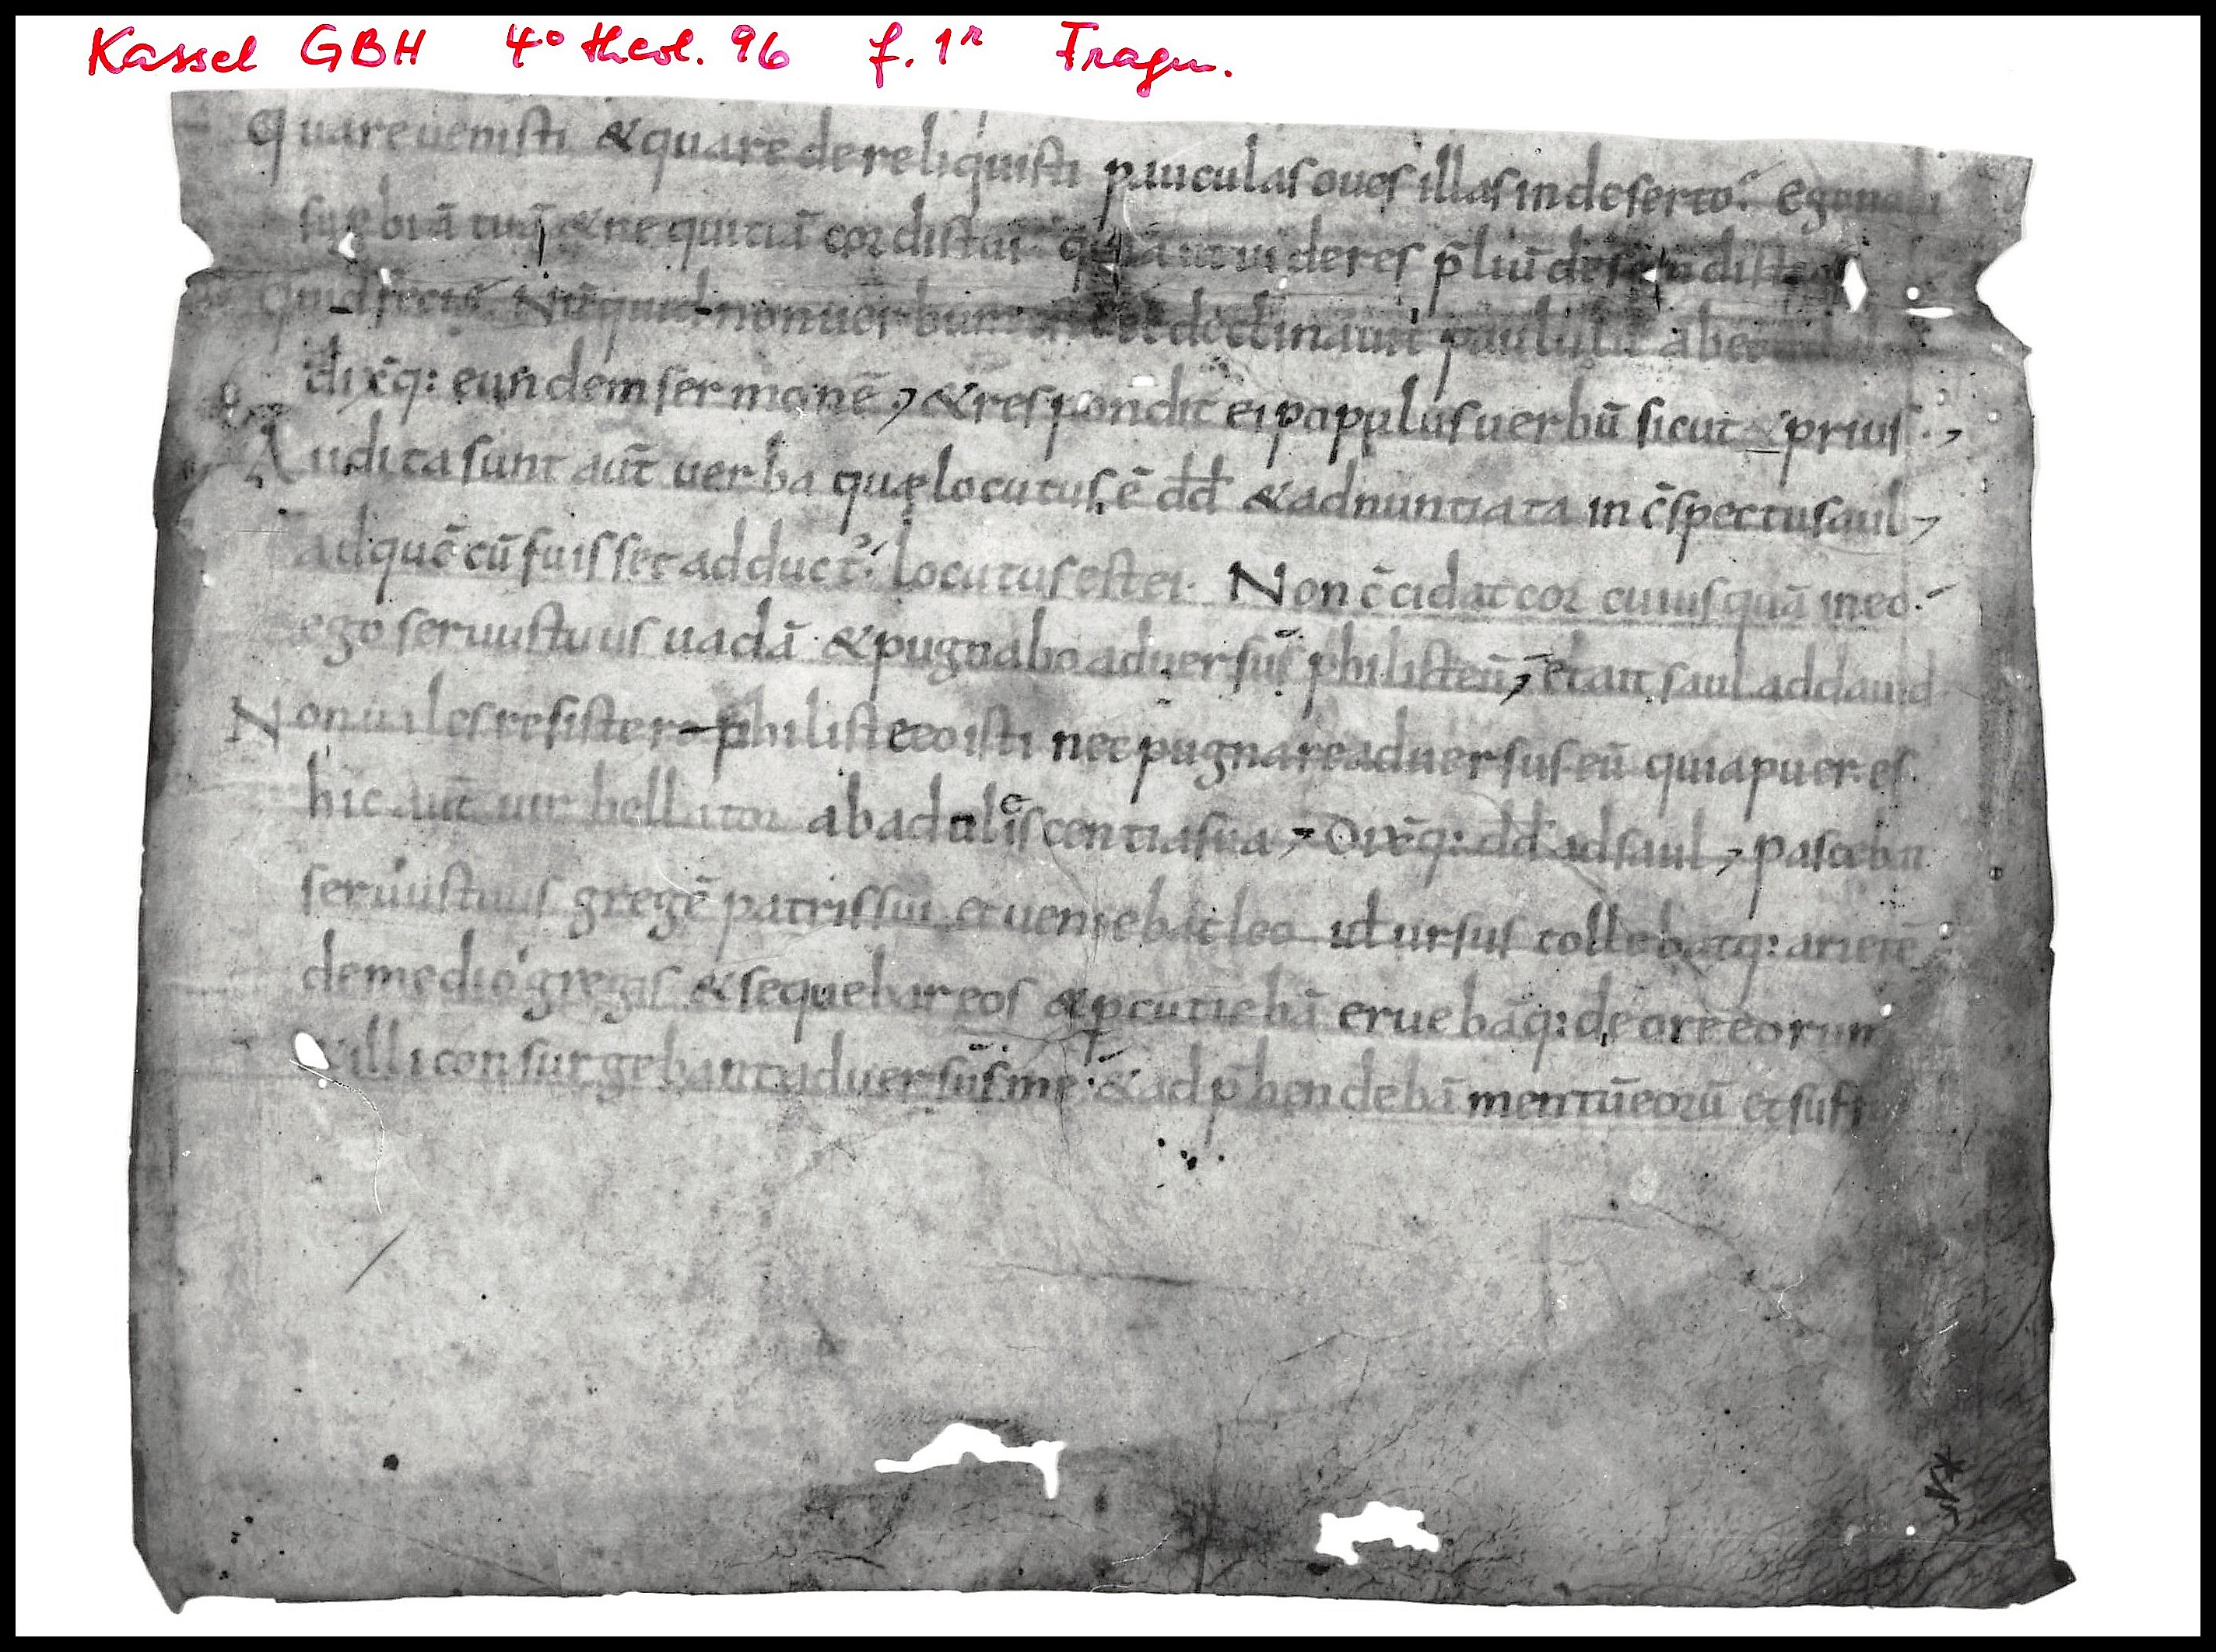 Kassel GBH 4° theol. 96 f. 1r Fragm.
Quare uenisti & quare dereliquisti pauculas oues illas in deserto. Ego noui
supbiā tuā & nequitiā cordis tui quia ut uideres p̄liū descendisti
Quid feci Nūquid non uerbum est et declinauit paululū ab eo
dix̄q: eundem sermonē, & respondit ei populus uerbū sicut & prius.,
Audita sunt aūt uerba quę locutus ē dd̄ & adnuntiata in c̄spectu saul,
ad quē cū fuisset adduct᾽. locutus est ei. Non c̄cidat cor cuiusquā in eo.
ego seruus tuus uadā & pugnabo aduersus philisteū, et ait saul ad dauid
Non uales resistere philisteo isti nec pugnare aduersus eū quia puer es.
hic aūt uir bellator ab adoliscentia sua, Dix̄q: dd̄ ad saul, pasceba
seruus tuus gregē patris sui et ueniebat leo ul ursus tollebatq: arietē
de medio gregis & sequebar eos & p̄cutiebā eruebāq: de ore eorum
& illi consurgebant aduersus me. & adp̄hendebā mentū eorū et suf